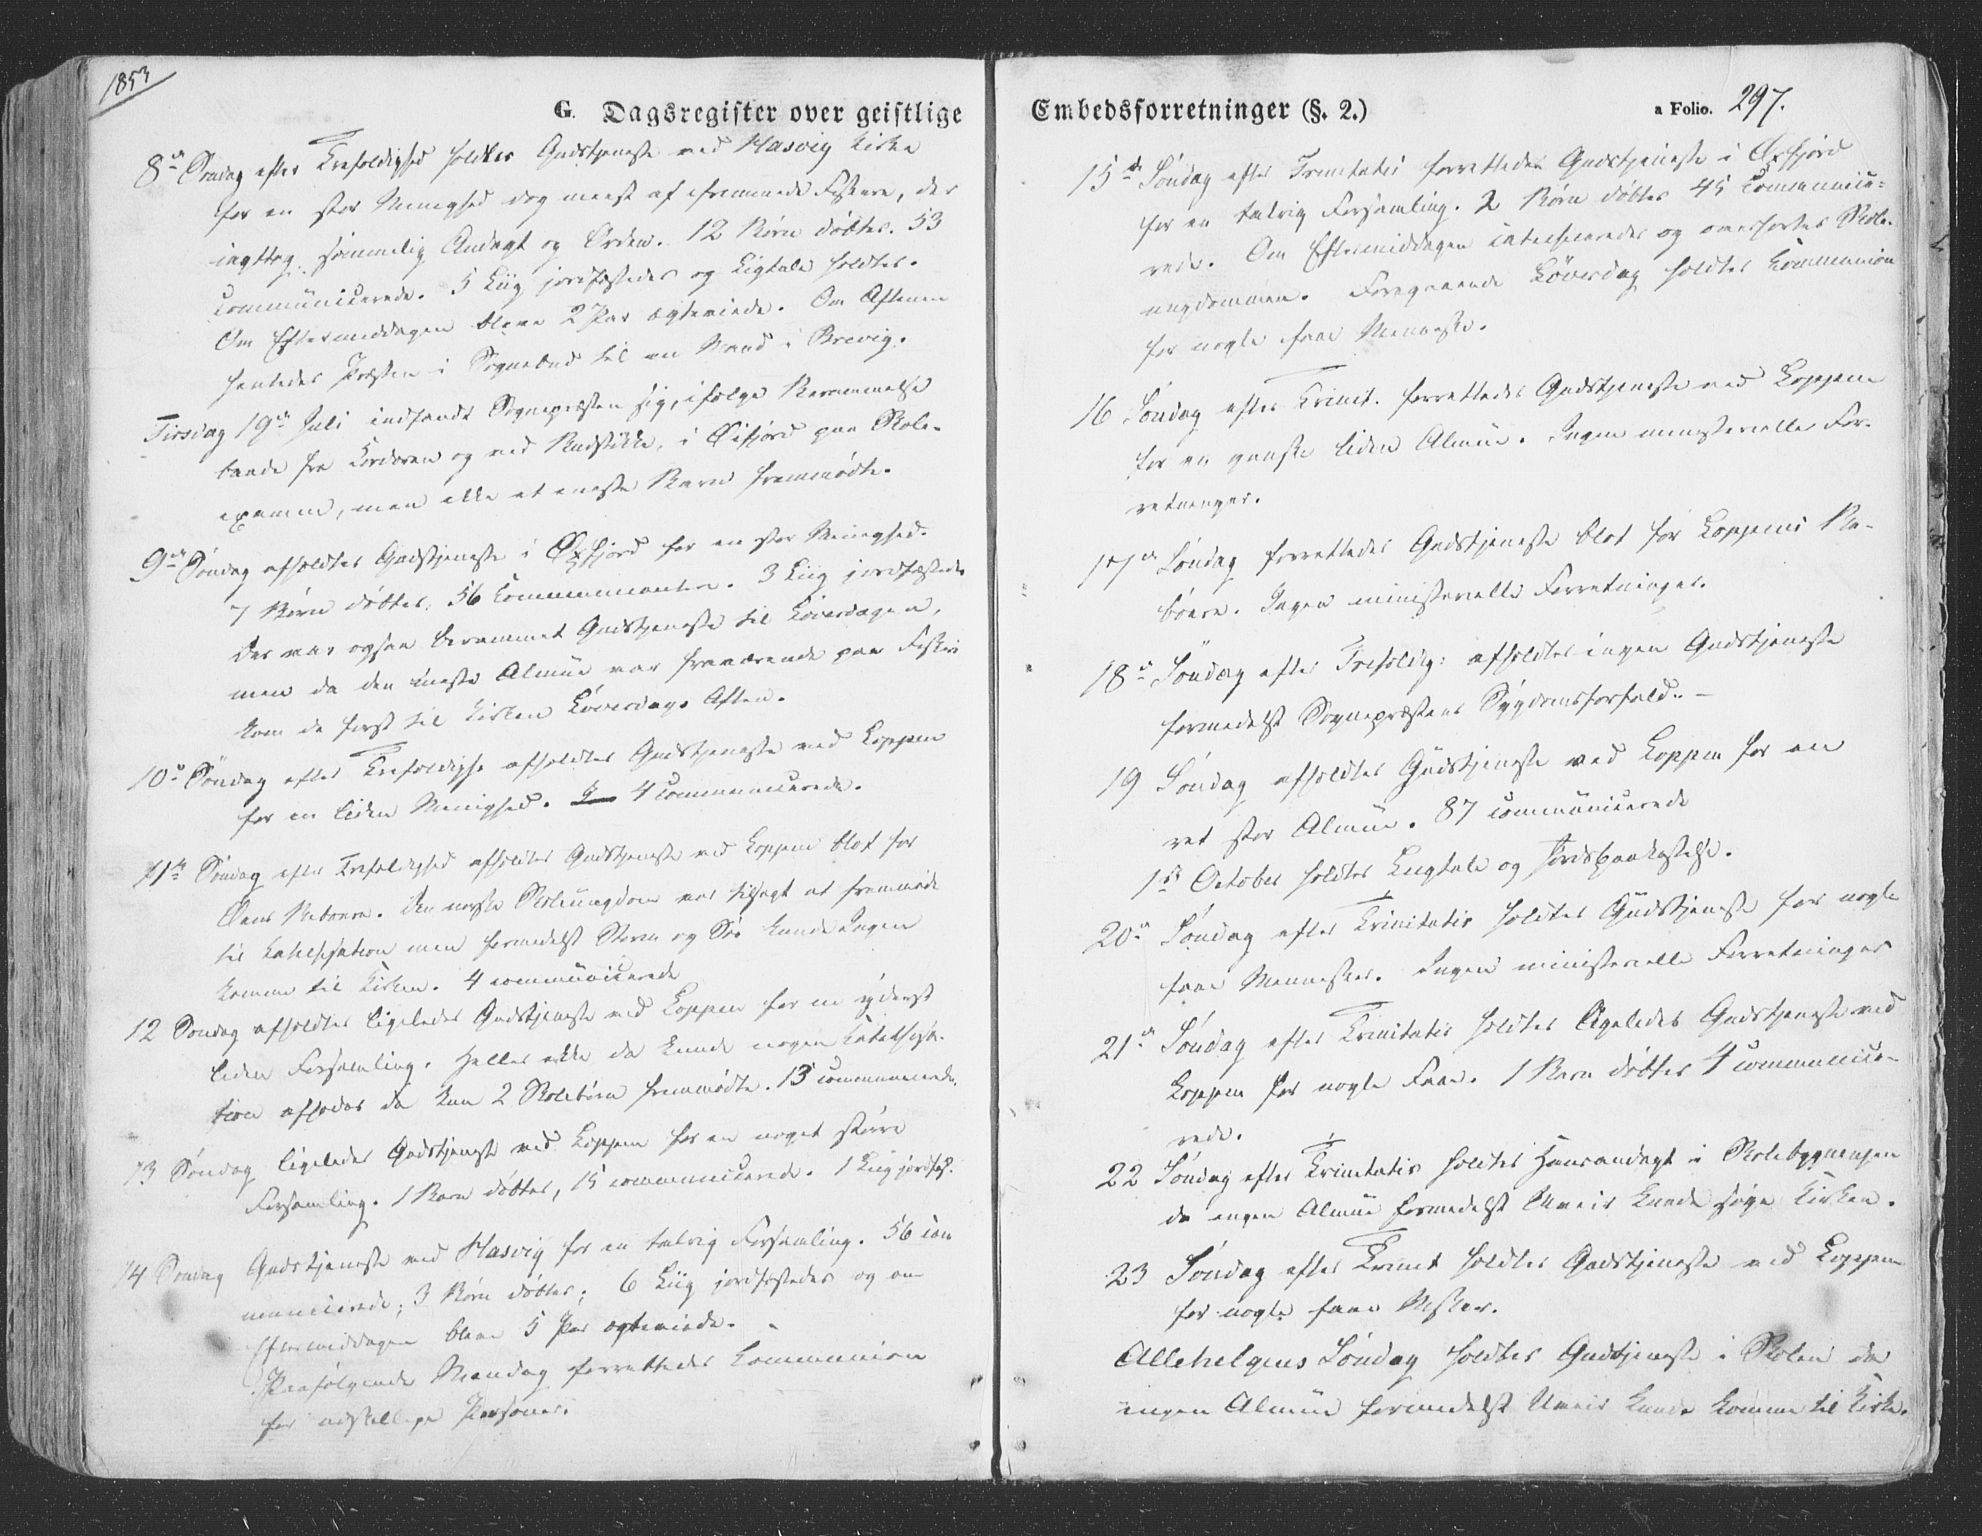 1853
G. Dagsregister over geistlige
8de Søndag efter Trefoldighed holdtes Gudstjeneste ved Hasvig Kirke
for en stor Menighed dog meest af fremmede Fiskere, der
iagttog sømmelig Andagt og Orden. 12 Børn døbtes. 53
communicerede. 5 Liig jordfæstedes og Ligtale holdtes.
Om Eftermiddagen bleve 2 Par ægteviede. Om Aftenen
hentedes Præsten i Sognebud til en Mand i Brevig.
Tirsdag 19de Juli indfandt Sognepræsten sig, ifølge Berammelse
baade fra Chordøren og ved Budstikke, i Øxfjord paa Skole-
examen, men ikke et eneste Barn fremmødte.
9de Søndag afholdtes Gudstjeneste i Øxfjord for en stor Menighed.
7 Børn døbtes. 56 Communicanter. 3 Liig jordfæstedes
Der var ogsaa berammet Gudstjeneste til Løverdagen,
men da den meste Almue var fraværende paa Fiskeri
kom de først til Kirken Løverdags Aften.
10de Søndag efter Trefoldighed afholdtes Gudstjeneste ved Loppen
for en liden Menighed. 4 communicerede.
11te Søndag efter Trefoldighed afholdtes Gudstjeneste ved Loppen blot for
Øens Beboere. Den norske Skoleungdom var tilsagt at fremmøde
til Katechisation men formedelst Storm og Sø kunde Ingen
komme til Kirken. 4 communicerede
12 Søndag afholdtes ligeledes Gudstjeneste ved Loppen for en yderst
liden Forsamling. Heller ikke da kunde nogen Katechisa-
tion afholdes da kun 2 Skolebørn fremmødte. 13 communicerede.
13 Søndag ligeledes Gudstjeneste ved Loppen for en noget større
Forsamling. 1 Barn døbtes, 15 communicerede. 1 Liig jordfæst.
14 Søndag Gudstjeneste ved Hasvig for en talrig Forsamling. 56 com
municerede; 3 Børn døbtes; 6 Liig jordfæstedes og om
Eftermiddagen bleve 5 Par ægteviede.
Paafølgende Mandag forrettedes Communion
for adskillige Personer.
Embedsforretninger (§. 2.)
a Folio. 297.
15de Søndag efter Trinitatis forrettedes Gudstjeneste i Øxfjord
for en talrig Forsamling. 2 Børn døbtes 45 Communice-
rede. Om Eftermiddagen catechiceredes og overhørtes Skole-
ungdommen. Foregaaende Løverdag holdtes Kommunion
for nogle faae Menneske.
16 Søndag efter Trinit. forrettedes Gudstjeneste ved Loppen
for en ganske liden Almue. Ingen ministerielle For-
retninger.
17de Søndag forrettedes Gudstjeneste blot for Loppens Be-
boere. Ingen ministerielle Forretninger.
18de Søndag efter Trefoldig: afholdtes ingen Gudstjeneste
formedelst Sognepræstens Sygdomsforfald. —
19 Søndag afholdtes Gudstjeneste ved Loppen for en
ret stor Almue. 87 communicerede
1ste October holdtes Liigtale og Jordspaakastelse.
20de Søndag efter Trinitatis holdtes Gudstjeneste for nogle
faae Mennesker. Ingen ministerielle Forretninger
21de Søndag efter Trinitatis holdtes ligeledes Gudstjeneste ved
Loppen for nogle Faae. 1 Barn døbtes 4 communice-
rede.
22 Søndag efter Trinitatis holdtes Huusandagt i Skolebygningen
da ingen Almue formedelst Uveir kunde søge Kirken.
23 Søndag efter Trinit holdtes Gudstjeneste ved Loppen
for nogle faae Msker.
Allehelgens Søndag holdtes Gudstjeneste i Skolen da
ingen Almue formedelst Uveir kunde komme til Kirke.